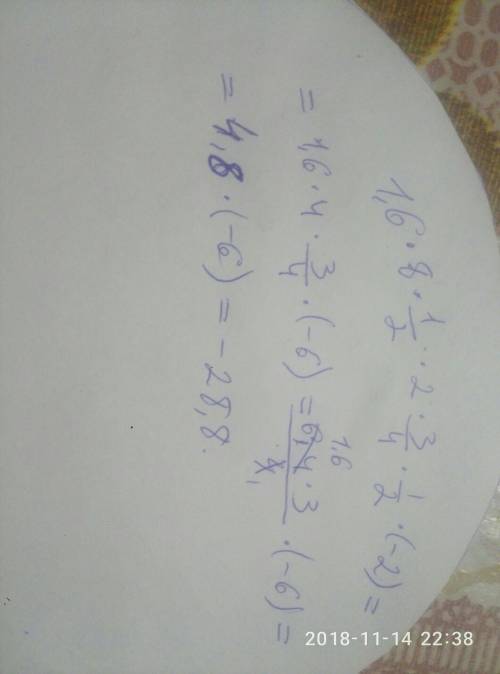 1,6 · 8 · 1/2 · 2 · 3/4 · 1/2 · (-2) =
= 1,6 · 4 · 3/4 · (-6) = 1,6 · 4 · 3 / 4 · (-6) =
= 4,8 · (-6) = -28,8.
2018-11-14 22:38